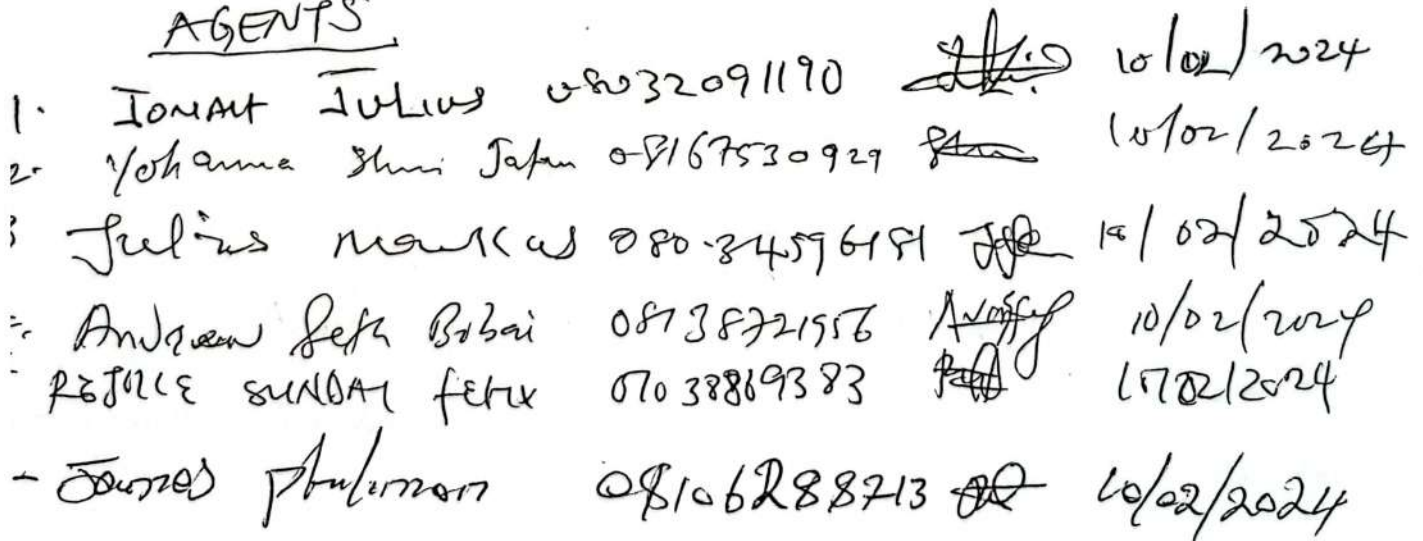 AGENTS
1. JONAH JULIUS 08032091190 10/02/2024
2. Yohanna Shui Jafan 08167530929 10/02/2024
3 Julius markus 080-34596181 10/02/2024
Andrew Seth Bobai 08138721956 10/02/2024
REJOICE SUNDAY FELIX 07038869383 10/02/2024
- James Philimon 08106288713 10/02/2024